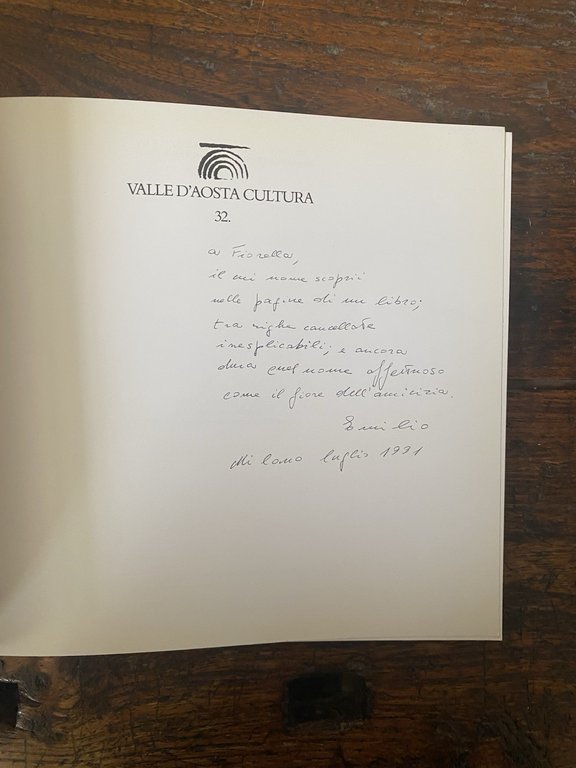 VALLE D'AOSTA CULTURA
32.
a Fiorella,
il cui nome scoprii
nelle pagine di un libro;
tra righe cancellate
inesplicabili; e ancora
dura quel nome affettuoso
come il fiore dell'amicizia.
Emilio
Milano luglio 1991